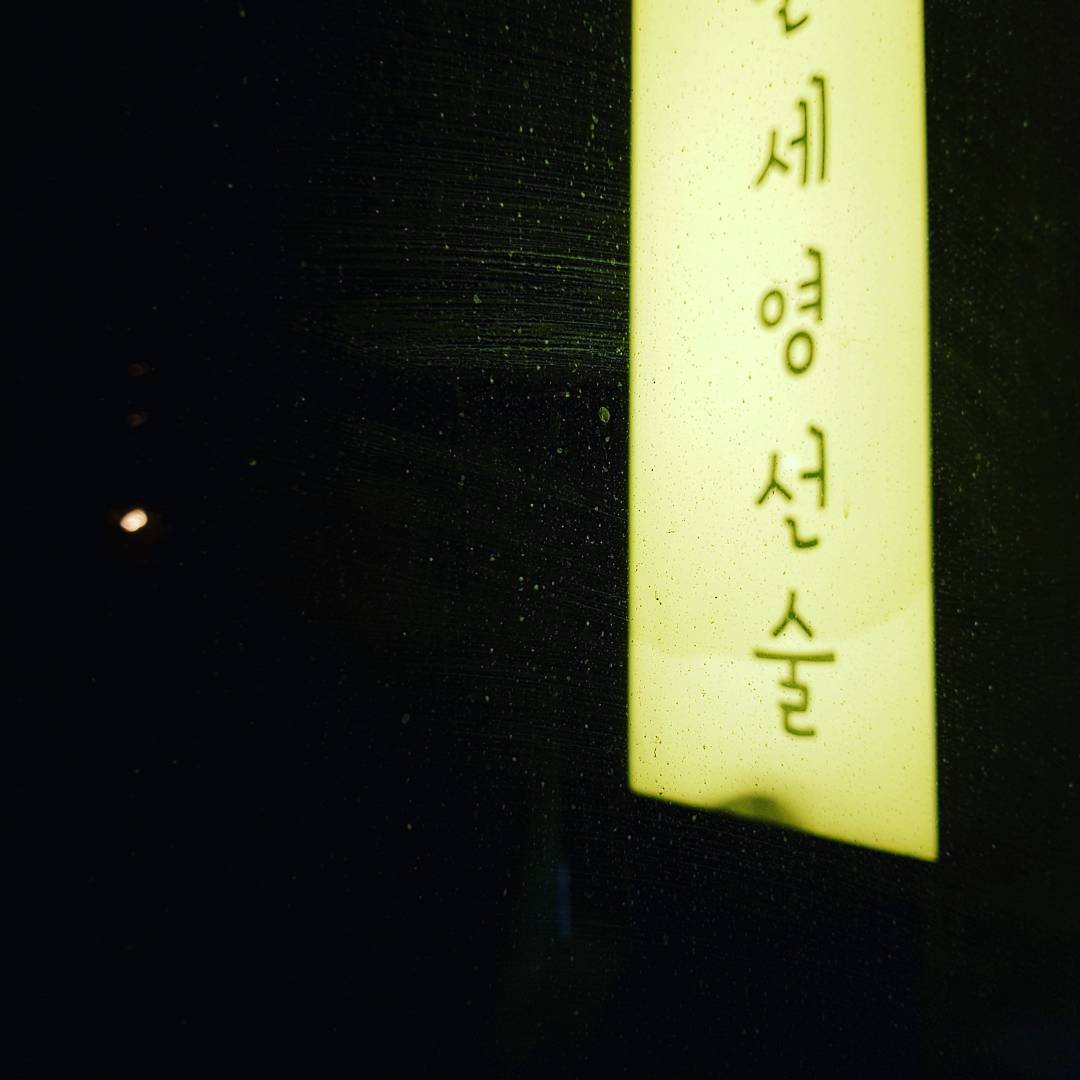 세영선술